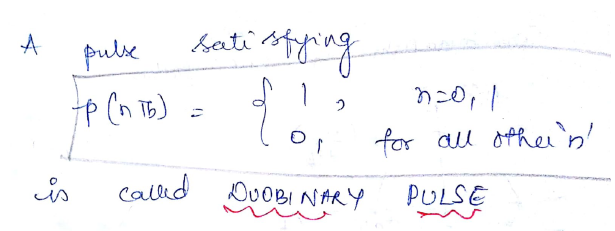 A pulse satisfying
p(nTb) = { 1, n=0,1
0, for all other 'n'
is called DUOBINARY PULSE